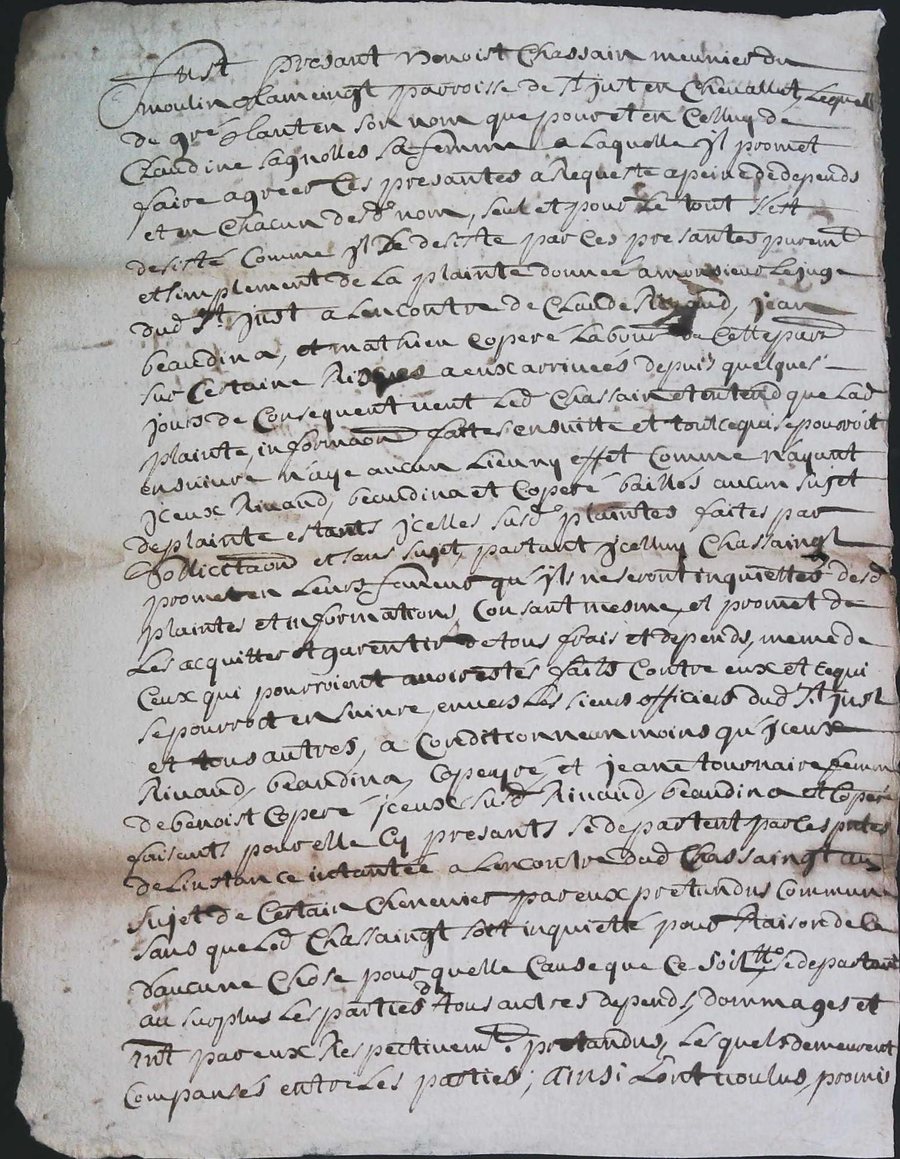 Fust presant Benoist Chassain meunier du
moulin Glameingt parroisse de St just en Chevallet, Lequel
de gré tant en son nom que pour et en Celluy de
Claudine Sagnolles sa femme a Laquelle jl promet
faire agreer Ces presantes a Requeste a peine de depends
et en Chacun desd nom, seul et pour Le tout s'est
desisté Comme jl Se desiste par Ces presantes puremt
et simplement de La plainte donneé a monsieur Le juge
dud St just a Lencontre de Claude Rivaud, jean
beaudina, et mathieu Coperé Labour de Cette part
sur Certaine Rixes a eux arriveés depuis quelques
jours de Consequent veut Led Chassain et entend que Lad
plainte, informaon faittes ensuitte et tout ce qui se pouroit
ensuivre n'aye aucun Lieu ny effet Comme n'ayant
jceux Rivaud, beaudina et Coperé baillés aucun sujet
de plainte estants jcelles susd plaintes faites par
Sollicitaon et sans sujet, partant jcelluy Chassaingt
promet en Leurs faveur qu'jls ne seront inquiettés desd
plaintes et informations Consant mesme, et promet de
Les acquitter et garentir de tous frais et depends, meme de
Ceux qui pourroient avoir estés faits Contre eux et ce qui
se pourroit ensuivre, envers Les sieurs officiers dud St just
et tous autres, a Condition neanmoins qu'jceux
Rivaud, beaudina, Copeyré, et jeane tournaire femme
de benoist Coperé jceux susd Rivaud, beaudina et Coperé
faisants pour elle Cy presants se departent par Ces pntes
de Linstance intantée a Lencontre dud Chassaingt au
sujet de Certain Chenevier par eux pretendus Commun
sans que Led Chassaingt soit inquietté pour Raison de ce
d'aucune Chose pour quelle Cause que Ce soit, se departant
au surplus Les parties de tous autres depends, dommages et
intt par eux Respectivemt pretandus, Les quels demeurent
Compansés entre Les parties; ainsi Lont voulus, promis